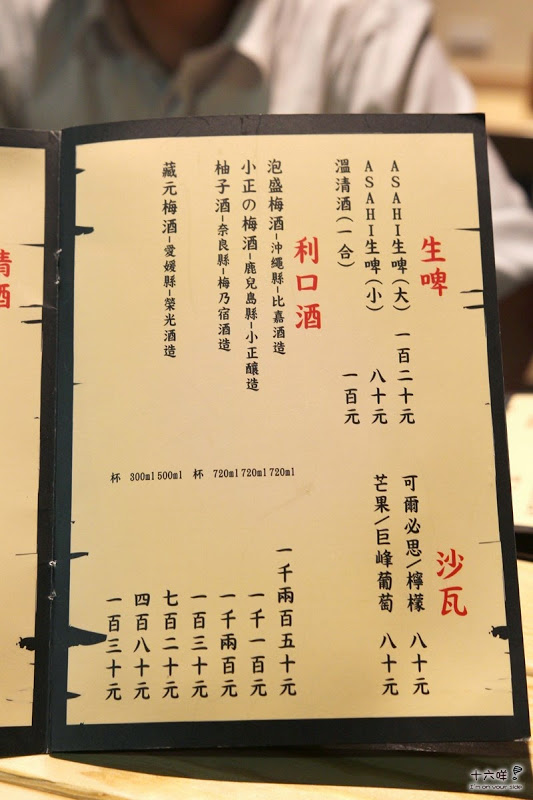 生啤
ASAHI生啤(大) 一百二十元
ASAHI生啤(小) 八十元
溫清酒(一合) 一百元
沙瓦
可爾必思/檸檬 八十元
芒果/巨峰葡萄 八十元
利口酒
泡盛梅酒-沖繩縣-比嘉酒造 720ml 一千兩百五十元
小正の梅酒-鹿兒島縣-小正釀造 720ml 一千一百元
柚子酒-奈良縣-梅乃宿酒造 720ml 一千兩百元
杯 一百三十元
藏元梅酒-愛媛縣-榮光酒造 500ml 七百二十元
300ml 四百八十元
杯 一百三十元
清酒
十六咩
I'm on your side